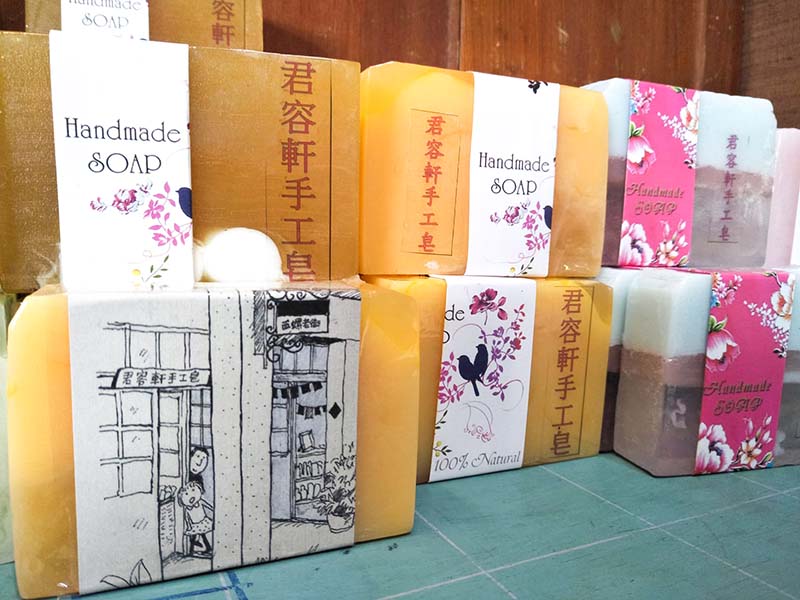 Handmade
SOAP
Handmade
SOAP
君容軒手工皂
君容軒手工皂
Handmade
SOAP
Handmade
SOAP
君容軒手工皂
君容軒手工皂
西螺老街
100% Natural
君容軒手工皂
Handmade
SOAP